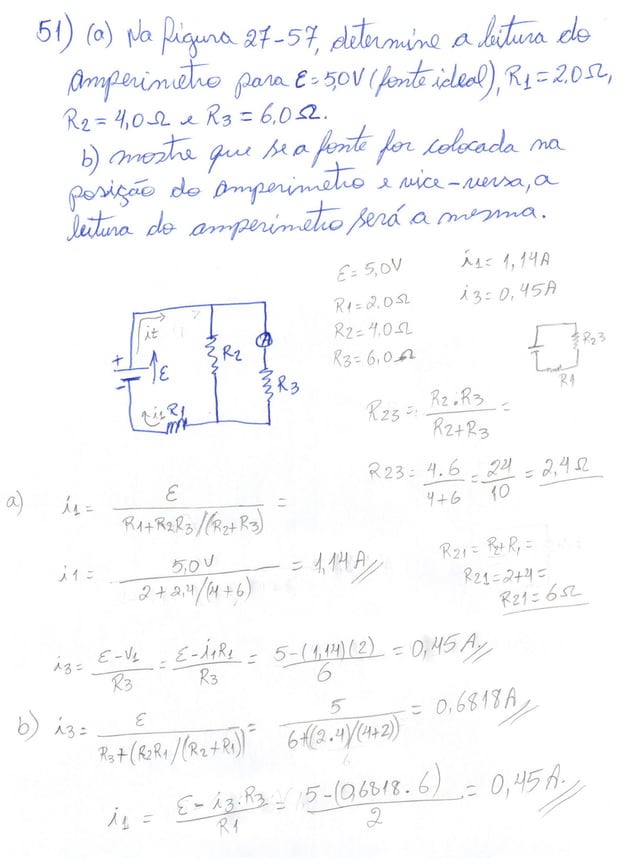 51) (a) Na figura 27-57, determine a leitura do
amperímetro para ε=5,0V (fonte ideal), R1=2,0Ω,
R2=4,0Ω e R3=6,0Ω.
b) mostre que se a fonte for colocada na
posição do amperímetro e vice-versa, a
leitura do amperímetro será a mesma.
ε=5,0V
R1=2,0Ω
R2=4,0Ω
R3=6,0Ω
i1=1,14A
i3=0,45A
+
-
it
ε
i1
R1
R2
A
R3
R23
R1
R23 = R2.R3/R2+R3 =
R23 = 4.6/4+6 = 24/10 = 2,4Ω
R21 = R2+R1 =
R21=2+4=
R21=6Ω
a) i1 = ε/R1+R2R3/(R2+R3) =
i1 = 5,0V/2+2,4/(4+6) = 1,14A
i3 = ε-V1/R3 = ε-i1R1/R3 = 5-(1,14)(2)/6 = 0,45A
b) i3 = ε/R3+(R2R1/(R2+R1)) = 5/6+((2.4)/(4+2)) = 0,6818A
i1 = ε-i3.R3/R1 = 5-(0,6818.6)/2 = 0,45A.